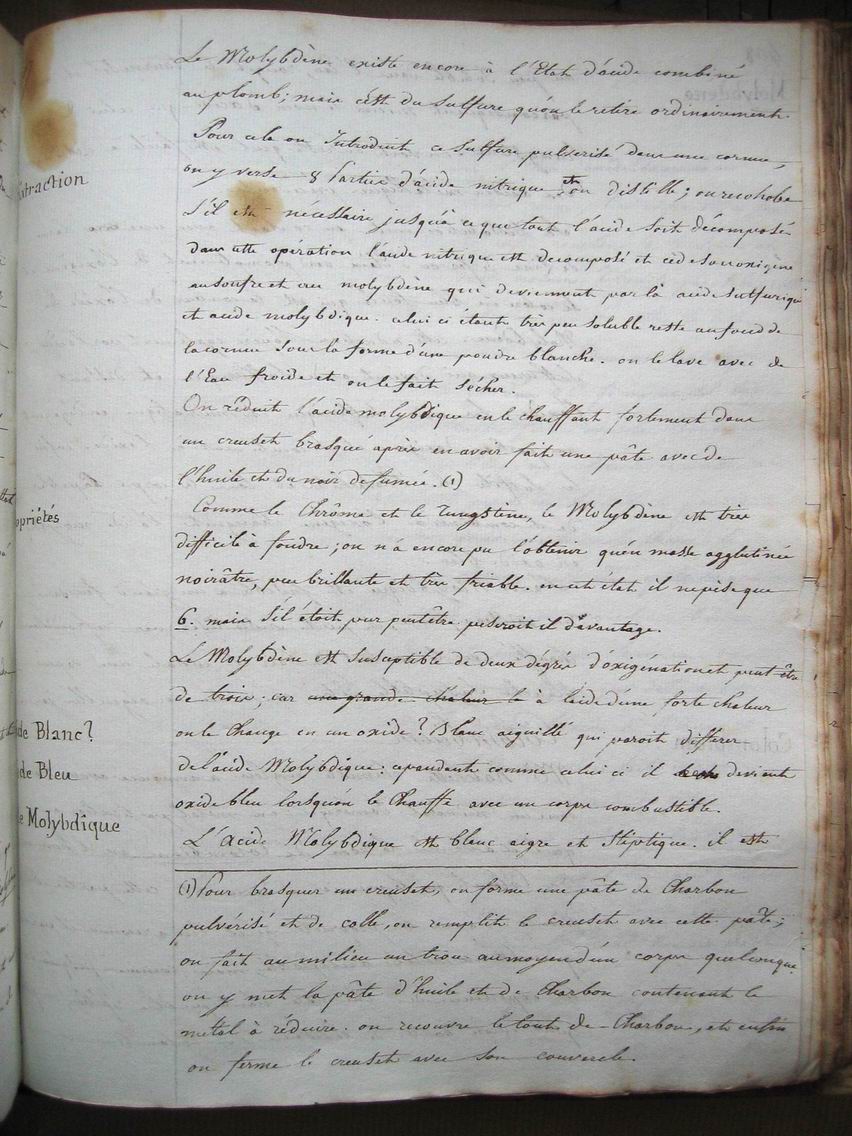 Le Molybdène existe encore à l'Etat d'acide combiné
au plomb; mais c'est du sulfure qu'on le retire ordinairement.
Extraction
Pour cela on Introduit ce sulfure pulverisé dans une cornue,
on y verse 8 Parties d'acide nitrique et on distille; on recohobe
S'il est nécessaire jusqu'à ce que tout l'acide soit décomposé.
dans cette opération l'acide nitrique est decomposé et cède son oxigene
au soufre et au molybdène qui deviennent par là acide sulfurique
et acide molybdique. celui ci étant très peu soluble reste au fond de
la cornue sous la forme d'une poudre blanche. on le lave avec de
l'Eau froide et on le fait sécher.
On réduit l'acide molybdique en le chauffant fortement dans
un creuset brasqué après en avoir fait une pâte avec de
l'huile et du noir de fumée. (1)
opriétés
Comme le Chrôme et le Tungstène, le Molybdène est très
difficile à fondre; on n'a encore pu l'obtenir qu'en masse agglutinée
noirâtre, peu brillante et très friable. en cet état il ne pèse que
6. mais S'il étoit pur peutêtre peseroit il d'avantage.
Le Molybdène est susceptible de deux dégrés d'oxigénation et peut être
de trois; car une grande chaleur le à l'aide d'une forte chaleur
de Blanc?
on le Change en un oxide? Blanc aiguillé qui paroit différer
de Bleu
de l'acide Molybdique: cependant comme celui ci il devient
oxide bleu lorsqu'on le Chauffe avec un corps combustible.
e Molybdique
L'Acide Molybdique est blanc aigre et Stiptique. il est
(1) Pour brasquer un creuset, on forme une pâte de Charbon
pulvérisé et de colle, on remplit le creuset avec cette pâte;
on fait au milieu un trou au moyen d'un corps quelconque
on y met la pâte d'huile et de Charbon contenant le
métal à réduire. on recouvre le tout de Charbon, et enfin
on ferme le creuset avec son couvercle.